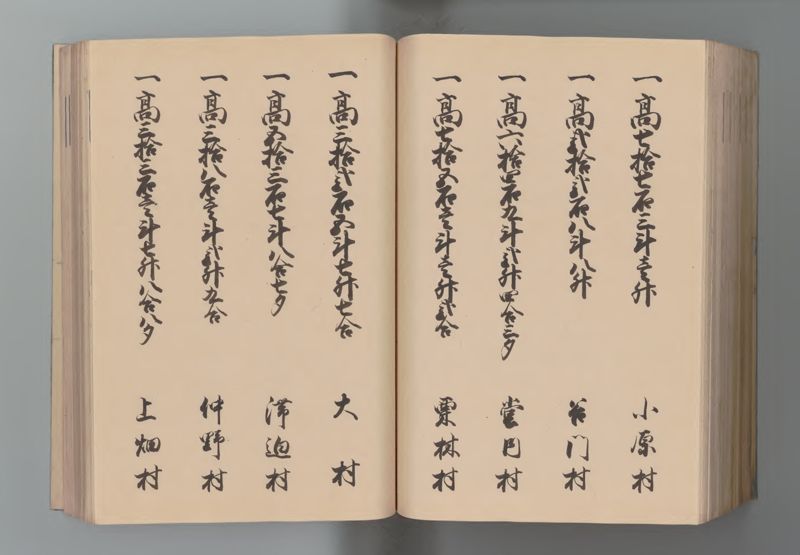 一高七拾七石三斗壱升 小原村
一高弐拾弐石八斗八升 谷門村
一高六拾四石九斗弐升四合三夕 堂円村
一高七拾五石壱斗壱升弐合 栗林村
一高三拾弐石五斗七升七合 大村
一高五拾三石七斗八合七夕 滞迫村
一高三拾八石壱斗弐升九合 仲野村
一高三拾三石壱斗七升八合八夕 上畑村